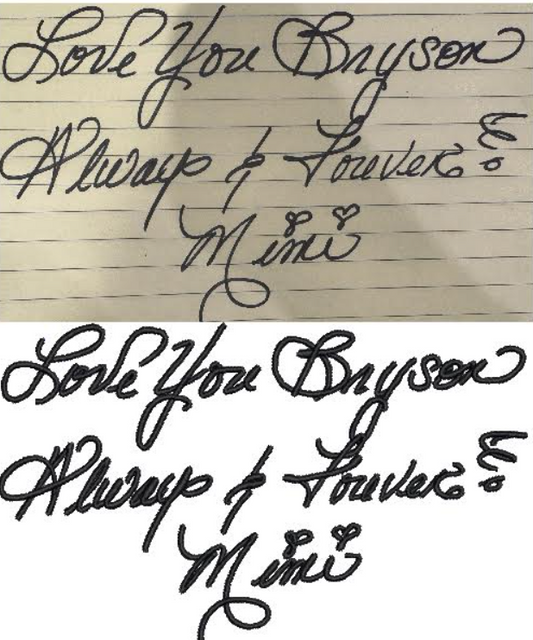 Love You Bryson
Always & Forever
Mimi
Love You Bryson
Always & Forever
Mimi